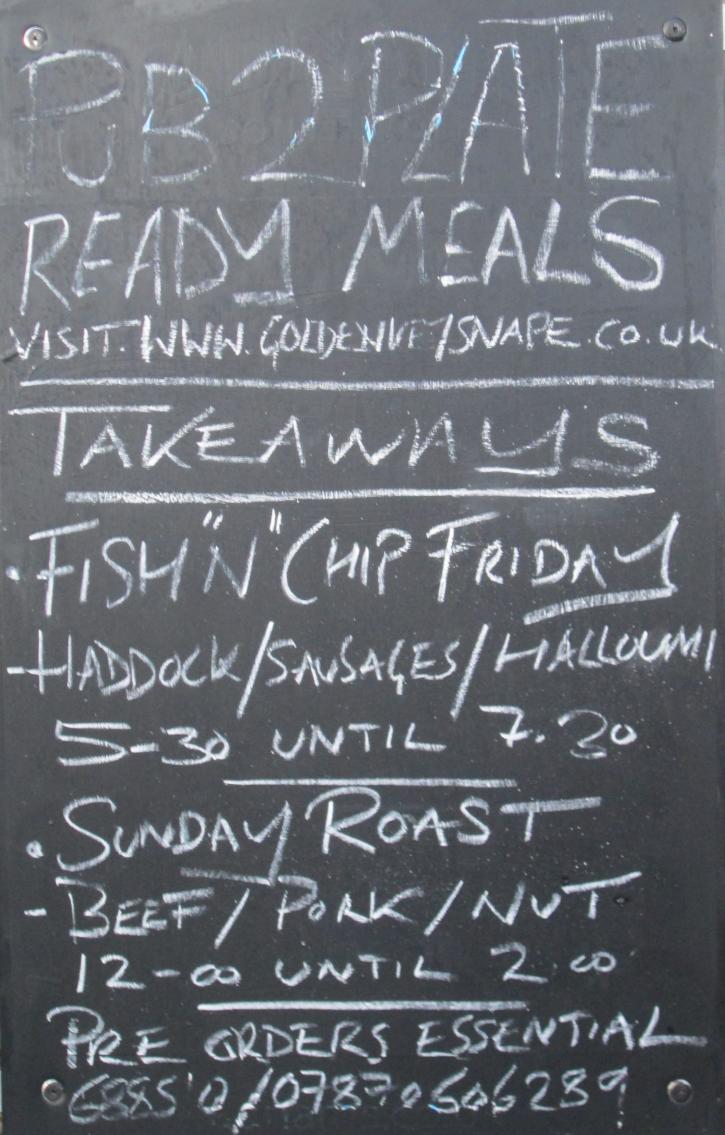 PUB 2 PLATE
READY MEALS
VISIT. WWW. GOLDENKEYSNAPE.CO.UK
TAKEAWAYS
• FISH "N" CHIP FRIDAY
- HADDOCK/SAUSAGES/HALLOUMI
5-30 UNTIL 7.30
• SUNDAY ROAST
- BEEF/PORK/NUT
12-00 UNTIL 2.00
PRE ORDERS ESSENTIAL
688510/07870606289